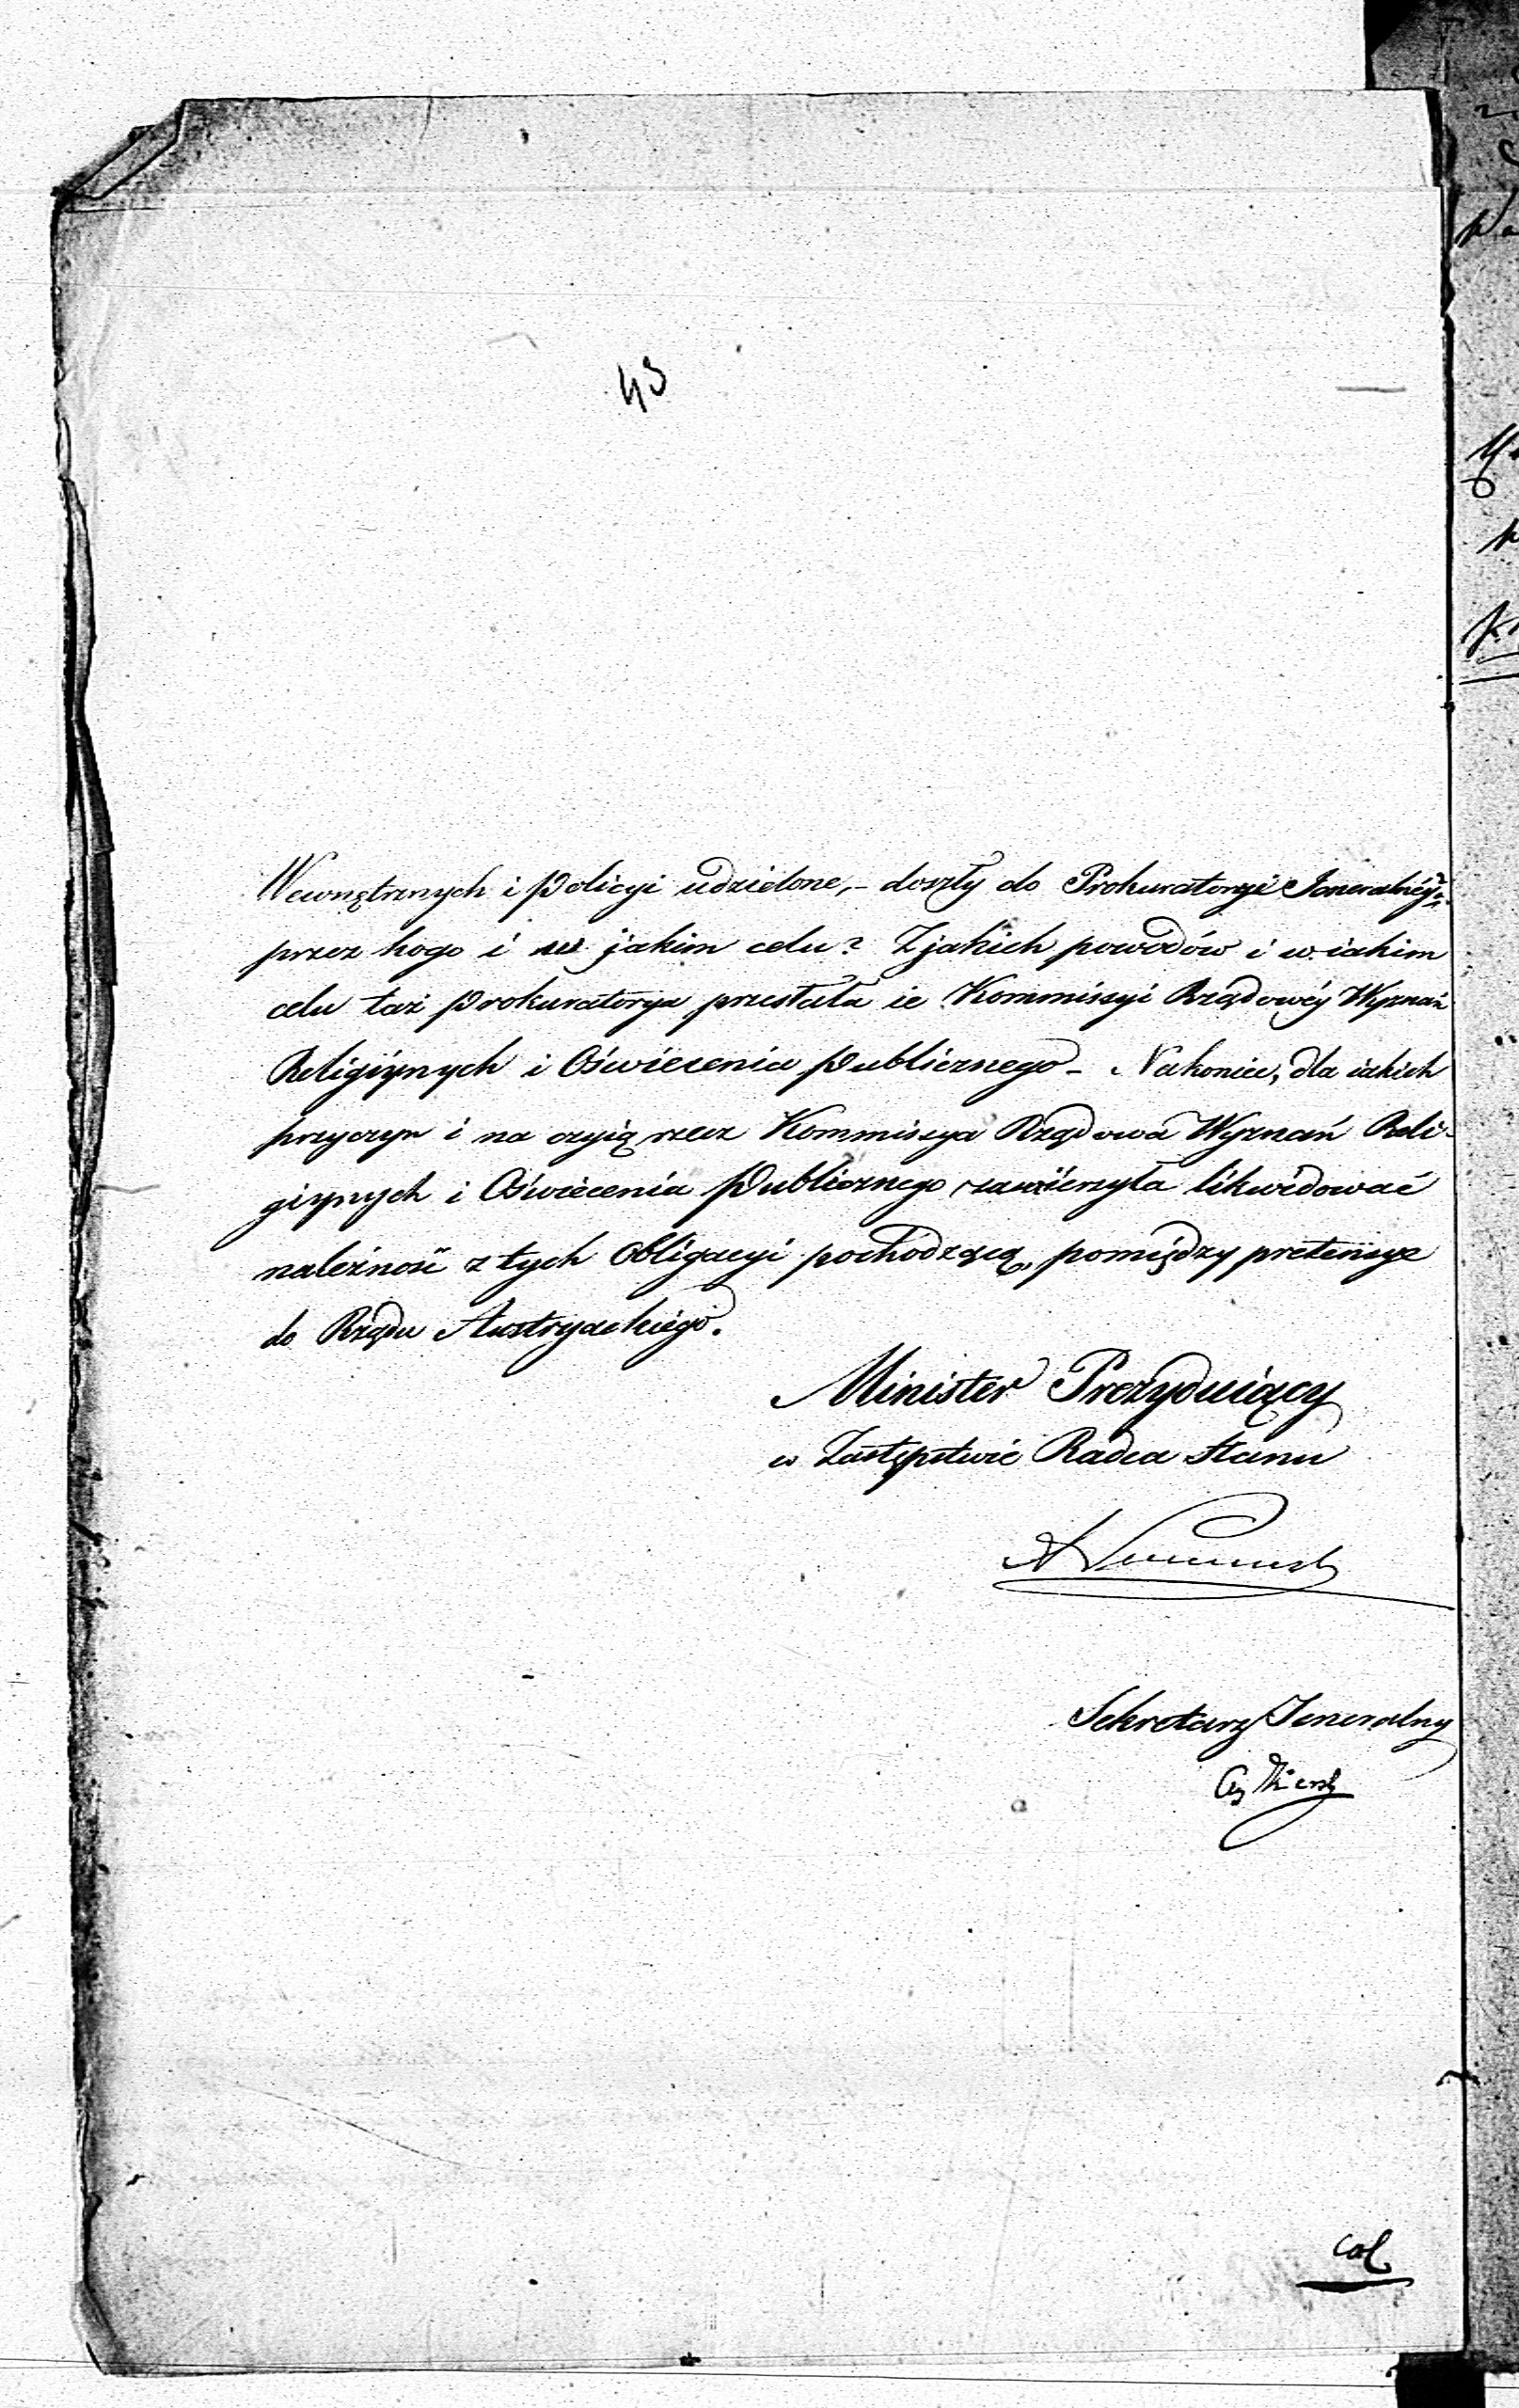 43
Wewnętrznych i Policyi udzielone, - doszły do Prokuratoryi Jeneralnéy
przez kogo i w jakim celu? Z jakich powodów i w iakim
celu taż Prokuratorya przesłała ie Kommissyi Rządowéy Wyznań
Religiynych i Oświecenia Publicznego - Nakoniec, dla iakich
przyczyn i na czyią rzecz Kommissya Rządowa Wyznań Reli-
giynych i Oświecenia Publicznego zamierzyła likwidować
należność z tych Obligacyi pochodzącą, pomiędzy pretensye
do Rządu Austryackiego.
Minister Prezyduiący
w Zastępstwie Radca Stanu
Sekretarz Jeneralny